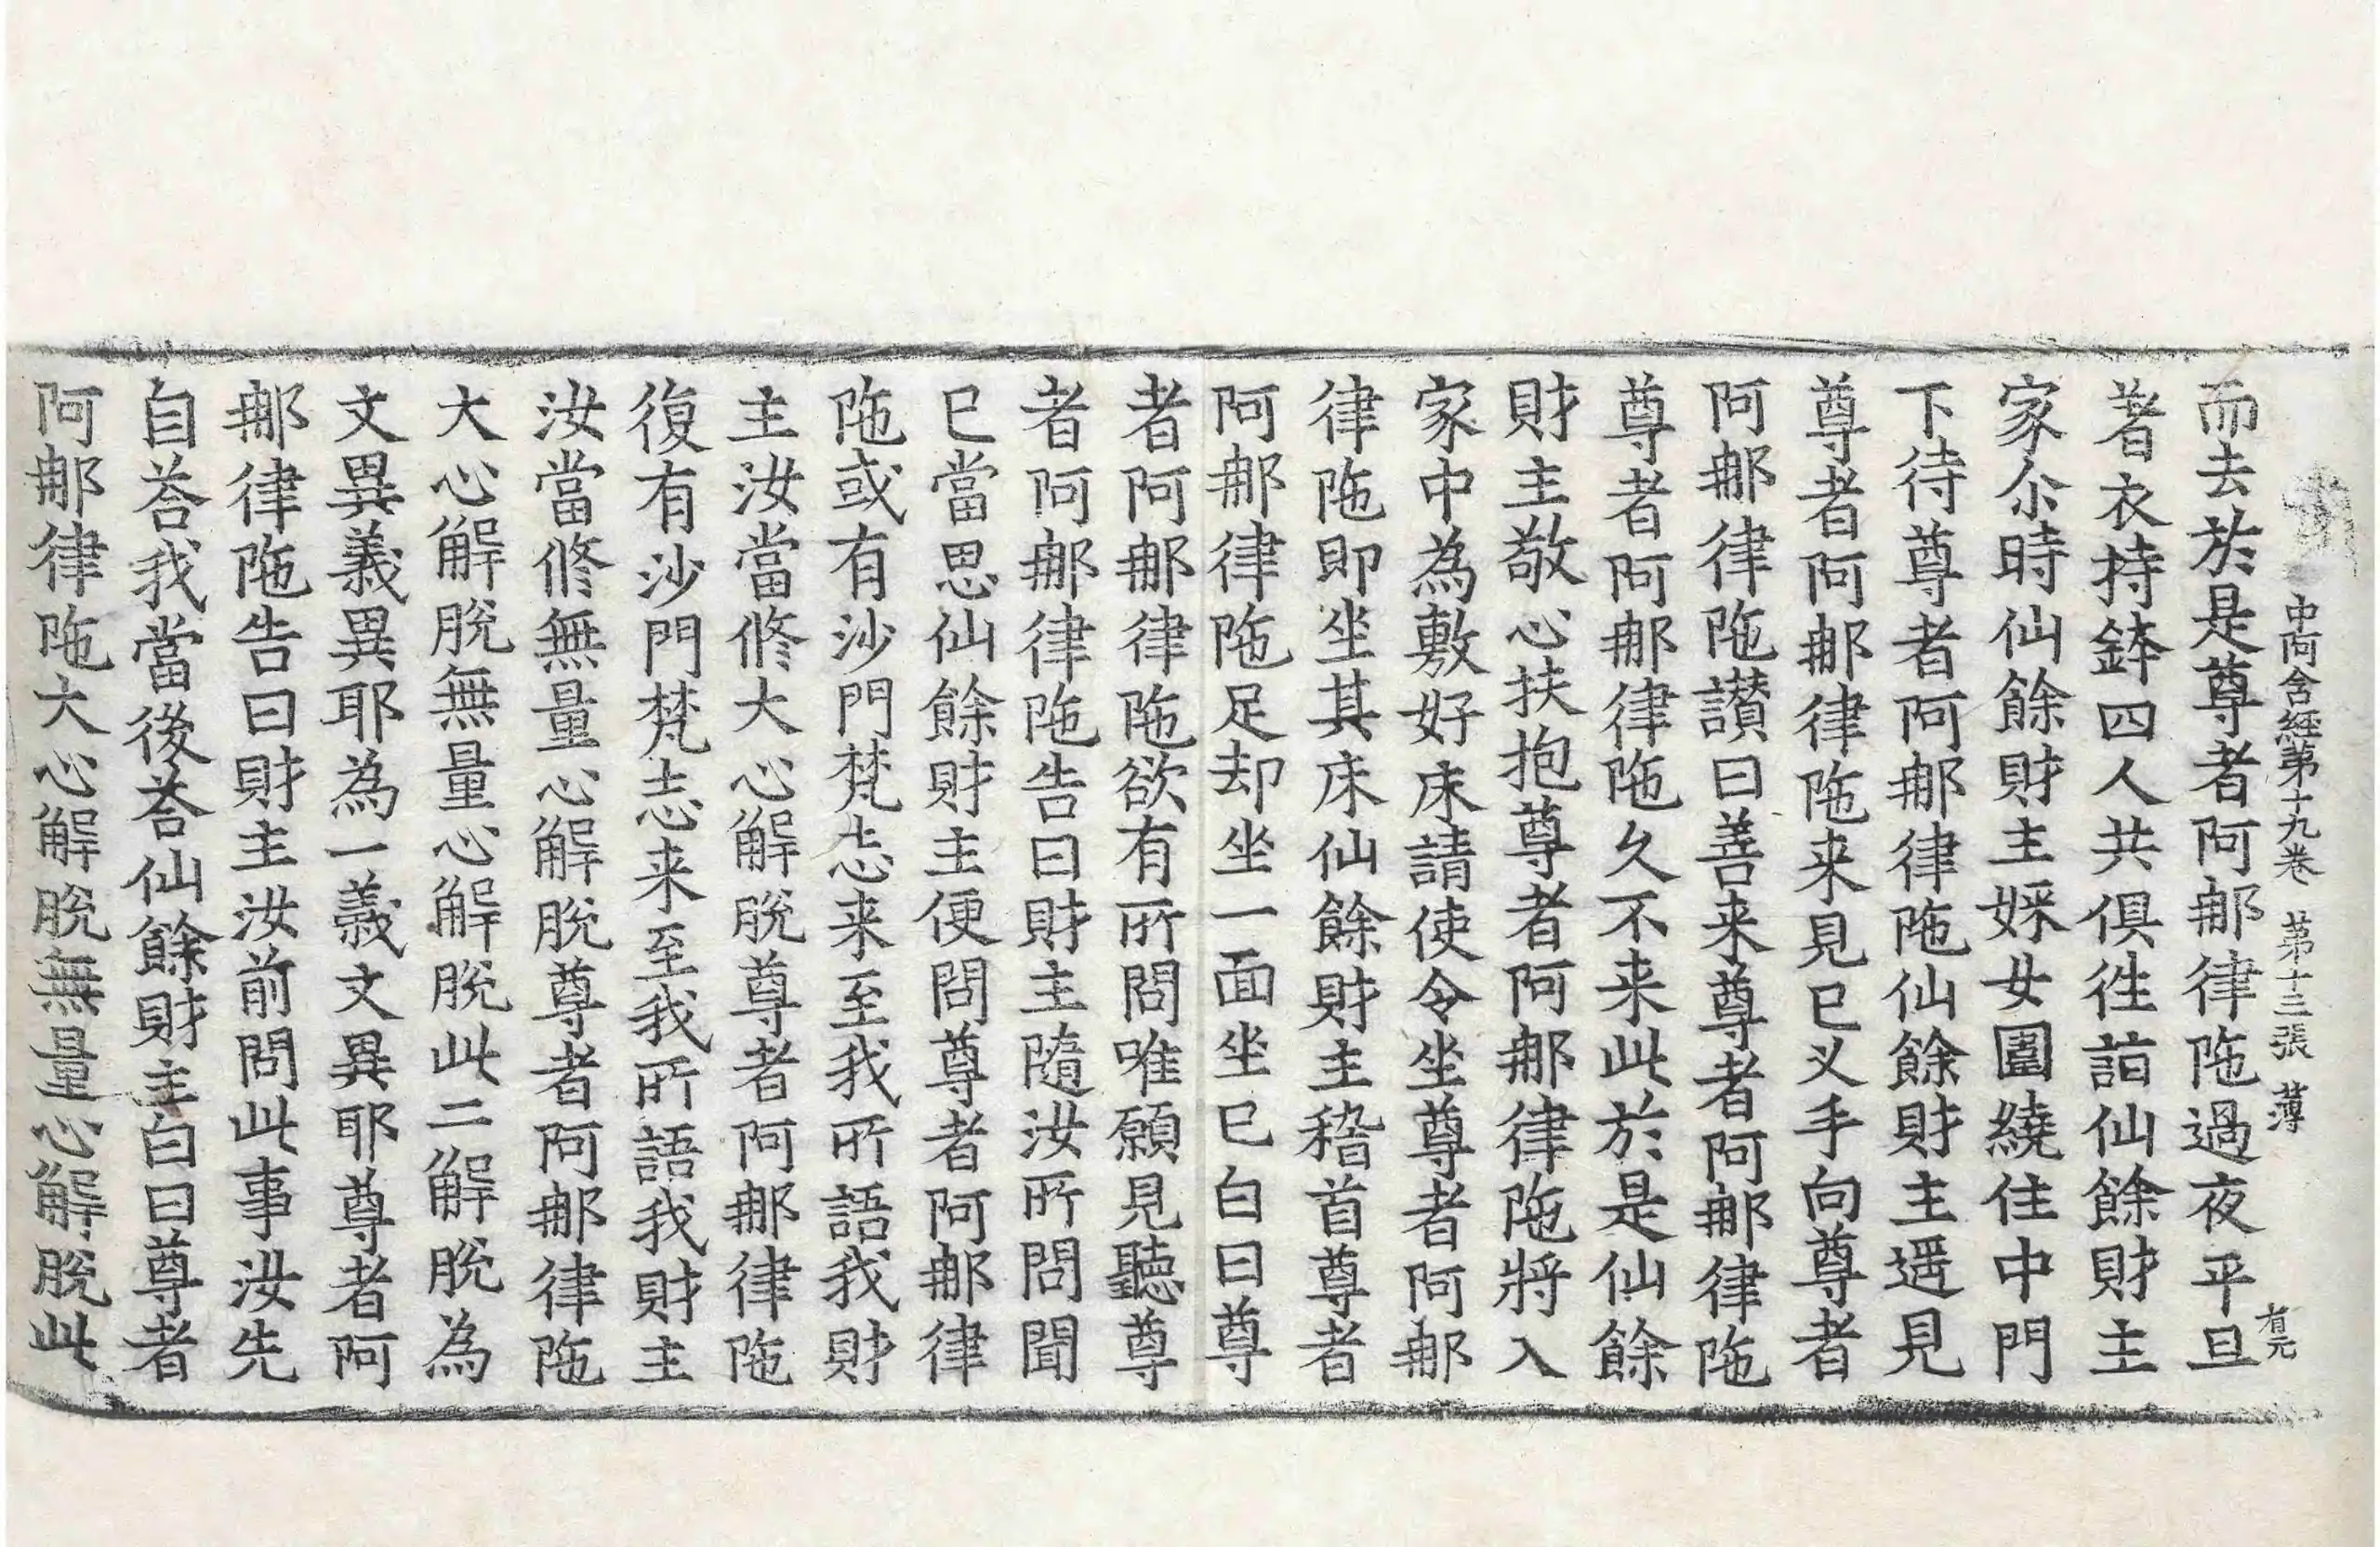 中阿含經第十九卷 第十三張 薄
有元
而去於是尊者阿郍律陁過夜平旦
著衣持鉢四人共俱徃詣仙餘財主
家尒時仙餘財主婇女圍繞住中門
下待尊者阿郍律陁仙餘財主遥見
尊者阿郍律陁来見已叉手向尊者
阿郍律陁讃曰善来尊者阿郍律陁
尊者阿郍律陁久不来此於是仙餘
財主敬心扶抱尊者阿郍律陁將入
家中為敷好床請使令坐尊者阿郍
律陁即坐其床仙餘財主稽首尊者
阿郍律陁足却坐一面坐已白曰尊
者阿郍律陁欲有所問唯願見聽尊
者阿郍律陁告曰財主隨汝所問聞
已當思仙餘財主便問尊者阿郍律
陁或有沙門梵志来至我所語我財
主汝當修大心解脫尊者阿郍律陁
復有沙門梵志来至我所語我財主
汝當修無量心解脫尊者阿郍律陁
大心解脫無量心解脫此二解脫為
文異義異耶為一義文異耶尊者阿
郍律陁告曰財主汝前問此事汝先
自荅我當後荅仙餘財主白曰尊者
阿郍律陁大心解脫無量心解脫此